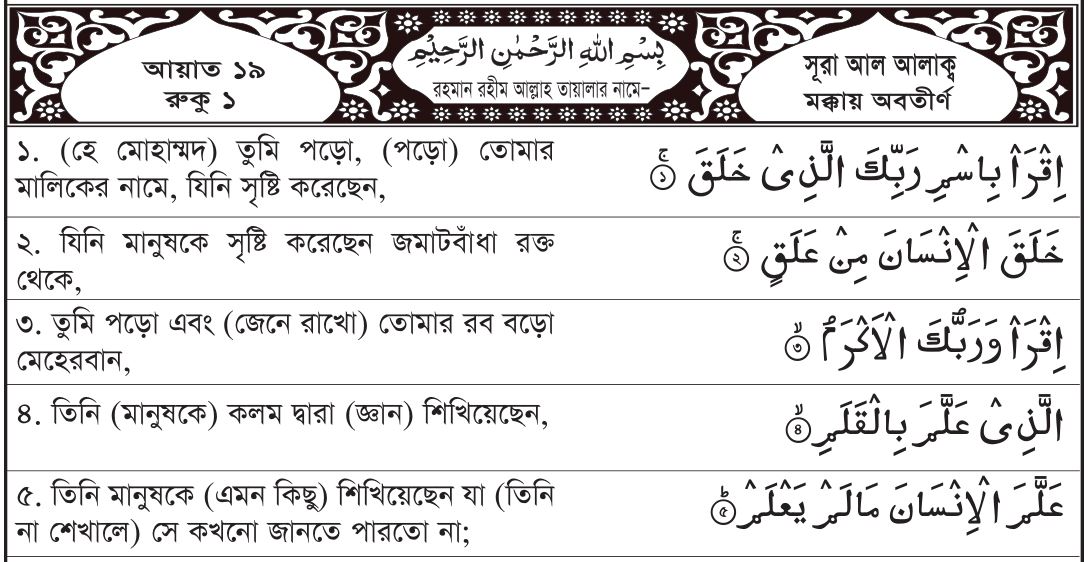 আয়াত ১৯
রুকু ১
بِسْمِ اللّٰهِ الرَّحْمٰنِ الرَّحِيْمِ
রহমান রহীম আল্লাহ তায়ালার নামে-
সূরা আল আলাক্ব
মক্কায় অবতীর্ণ
১. (হে মোহাম্মদ) তুমি পড়ো, (পড়ো) তোমার
মালিকের নামে, যিনি সৃষ্টি করেছেন,
اِقْرَاْ بِاسْمِ رَبِّكَ الَّذِىْ خَلَقَ ۚ ﴿১﴾
২. যিনি মানুষকে সৃষ্টি করেছেন জমাটবাঁধা রক্ত
থেকে,
خَلَقَ الْاِنْسَانَ مِنْ عَلَقٍ ۚ ﴿২﴾
৩. তুমি পড়ো এবং (জেনে রাখো) তোমার রব বড়ো
মেহেরবান,
اِقْرَاْ وَرَبُّكَ الْاَكْرَمُ ۙ ﴿৩﴾
৪. তিনি (মানুষকে) কলম দ্বারা (জ্ঞান) শিখিয়েছেন,
الَّذِىْ عَلَّمَ بِالْقَلَمِ ۙ ﴿৪﴾
৫. তিনি মানুষকে (এমন কিছু) শিখিয়েছেন যা (তিনি
না শেখালে) সে কখনো জানতে পারতো না;
عَلَّمَ الْاِنْسَانَ مَالَمْ يَعْلَمْ ؕ ﴿৫﴾